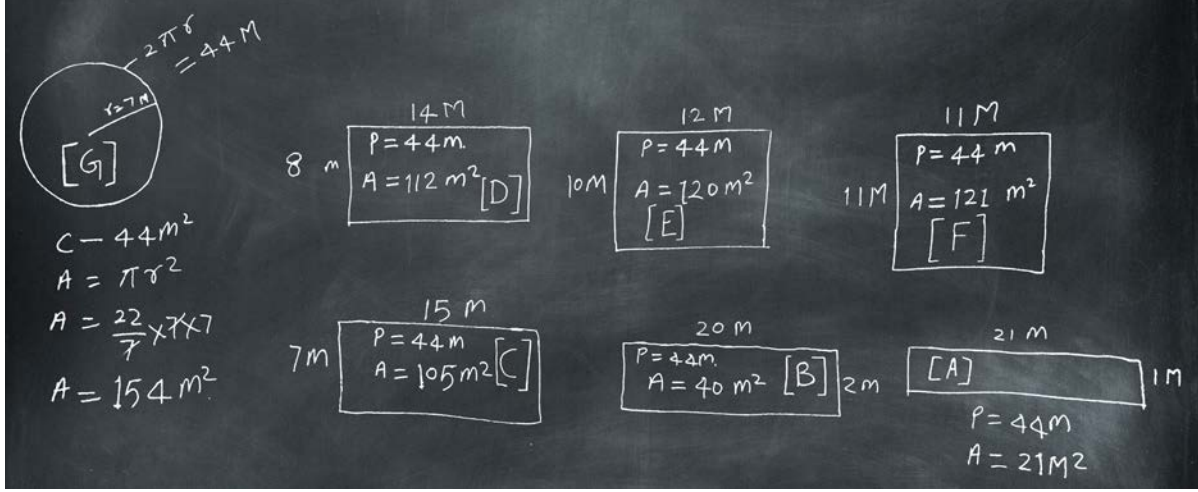 2πr
= 44 M
r=7M
[G]
C – 44m²
A = πr²
A = 22/7 x7x7
A = 154 m²
14 M
8 m
P = 44m.
A = 112 m² [D]
12 M
10M
P = 44M
A = 120 m²
[E]
11 M
11M
P = 44 m
A = 121 m²
[F]
15 m
7M
P = 44 m
A = 105 m² [C]
20 M
P = 44m.
A = 40 m² [B]
2m
21 M
[A]
1M
P = 44m
A = 21M2